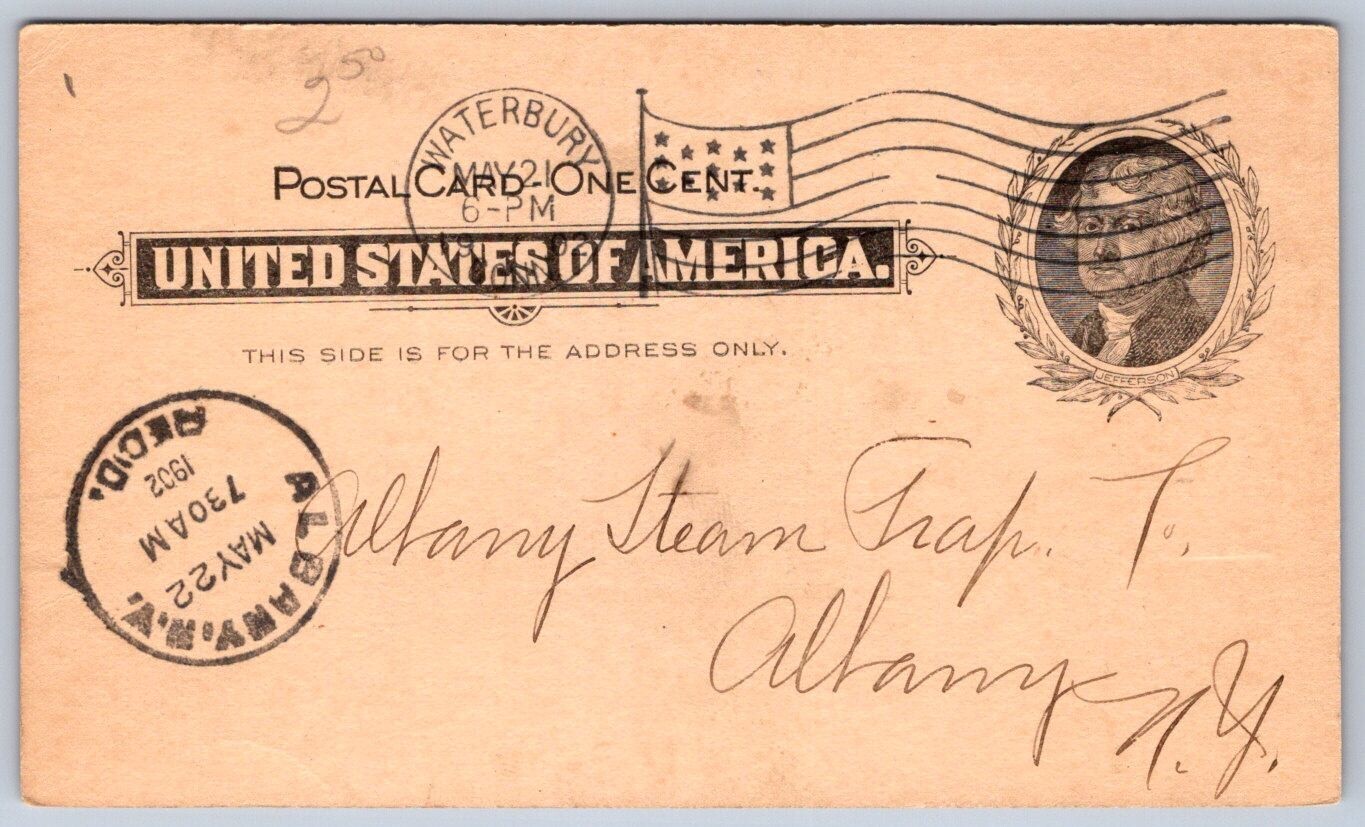 2 50
WATERBURY
MAY 21
6-PM
1902
CONN.
POSTAL CARD - ONE CENT.
UNITED STATES OF AMERICA.
THIS SIDE IS FOR THE ADDRESS ONLY.
JEFFERSON
ALBANY. N.Y.
MAY 22
7 30 AM
1902
REC'D.
Albany Steam Trap.
Albany N.Y.